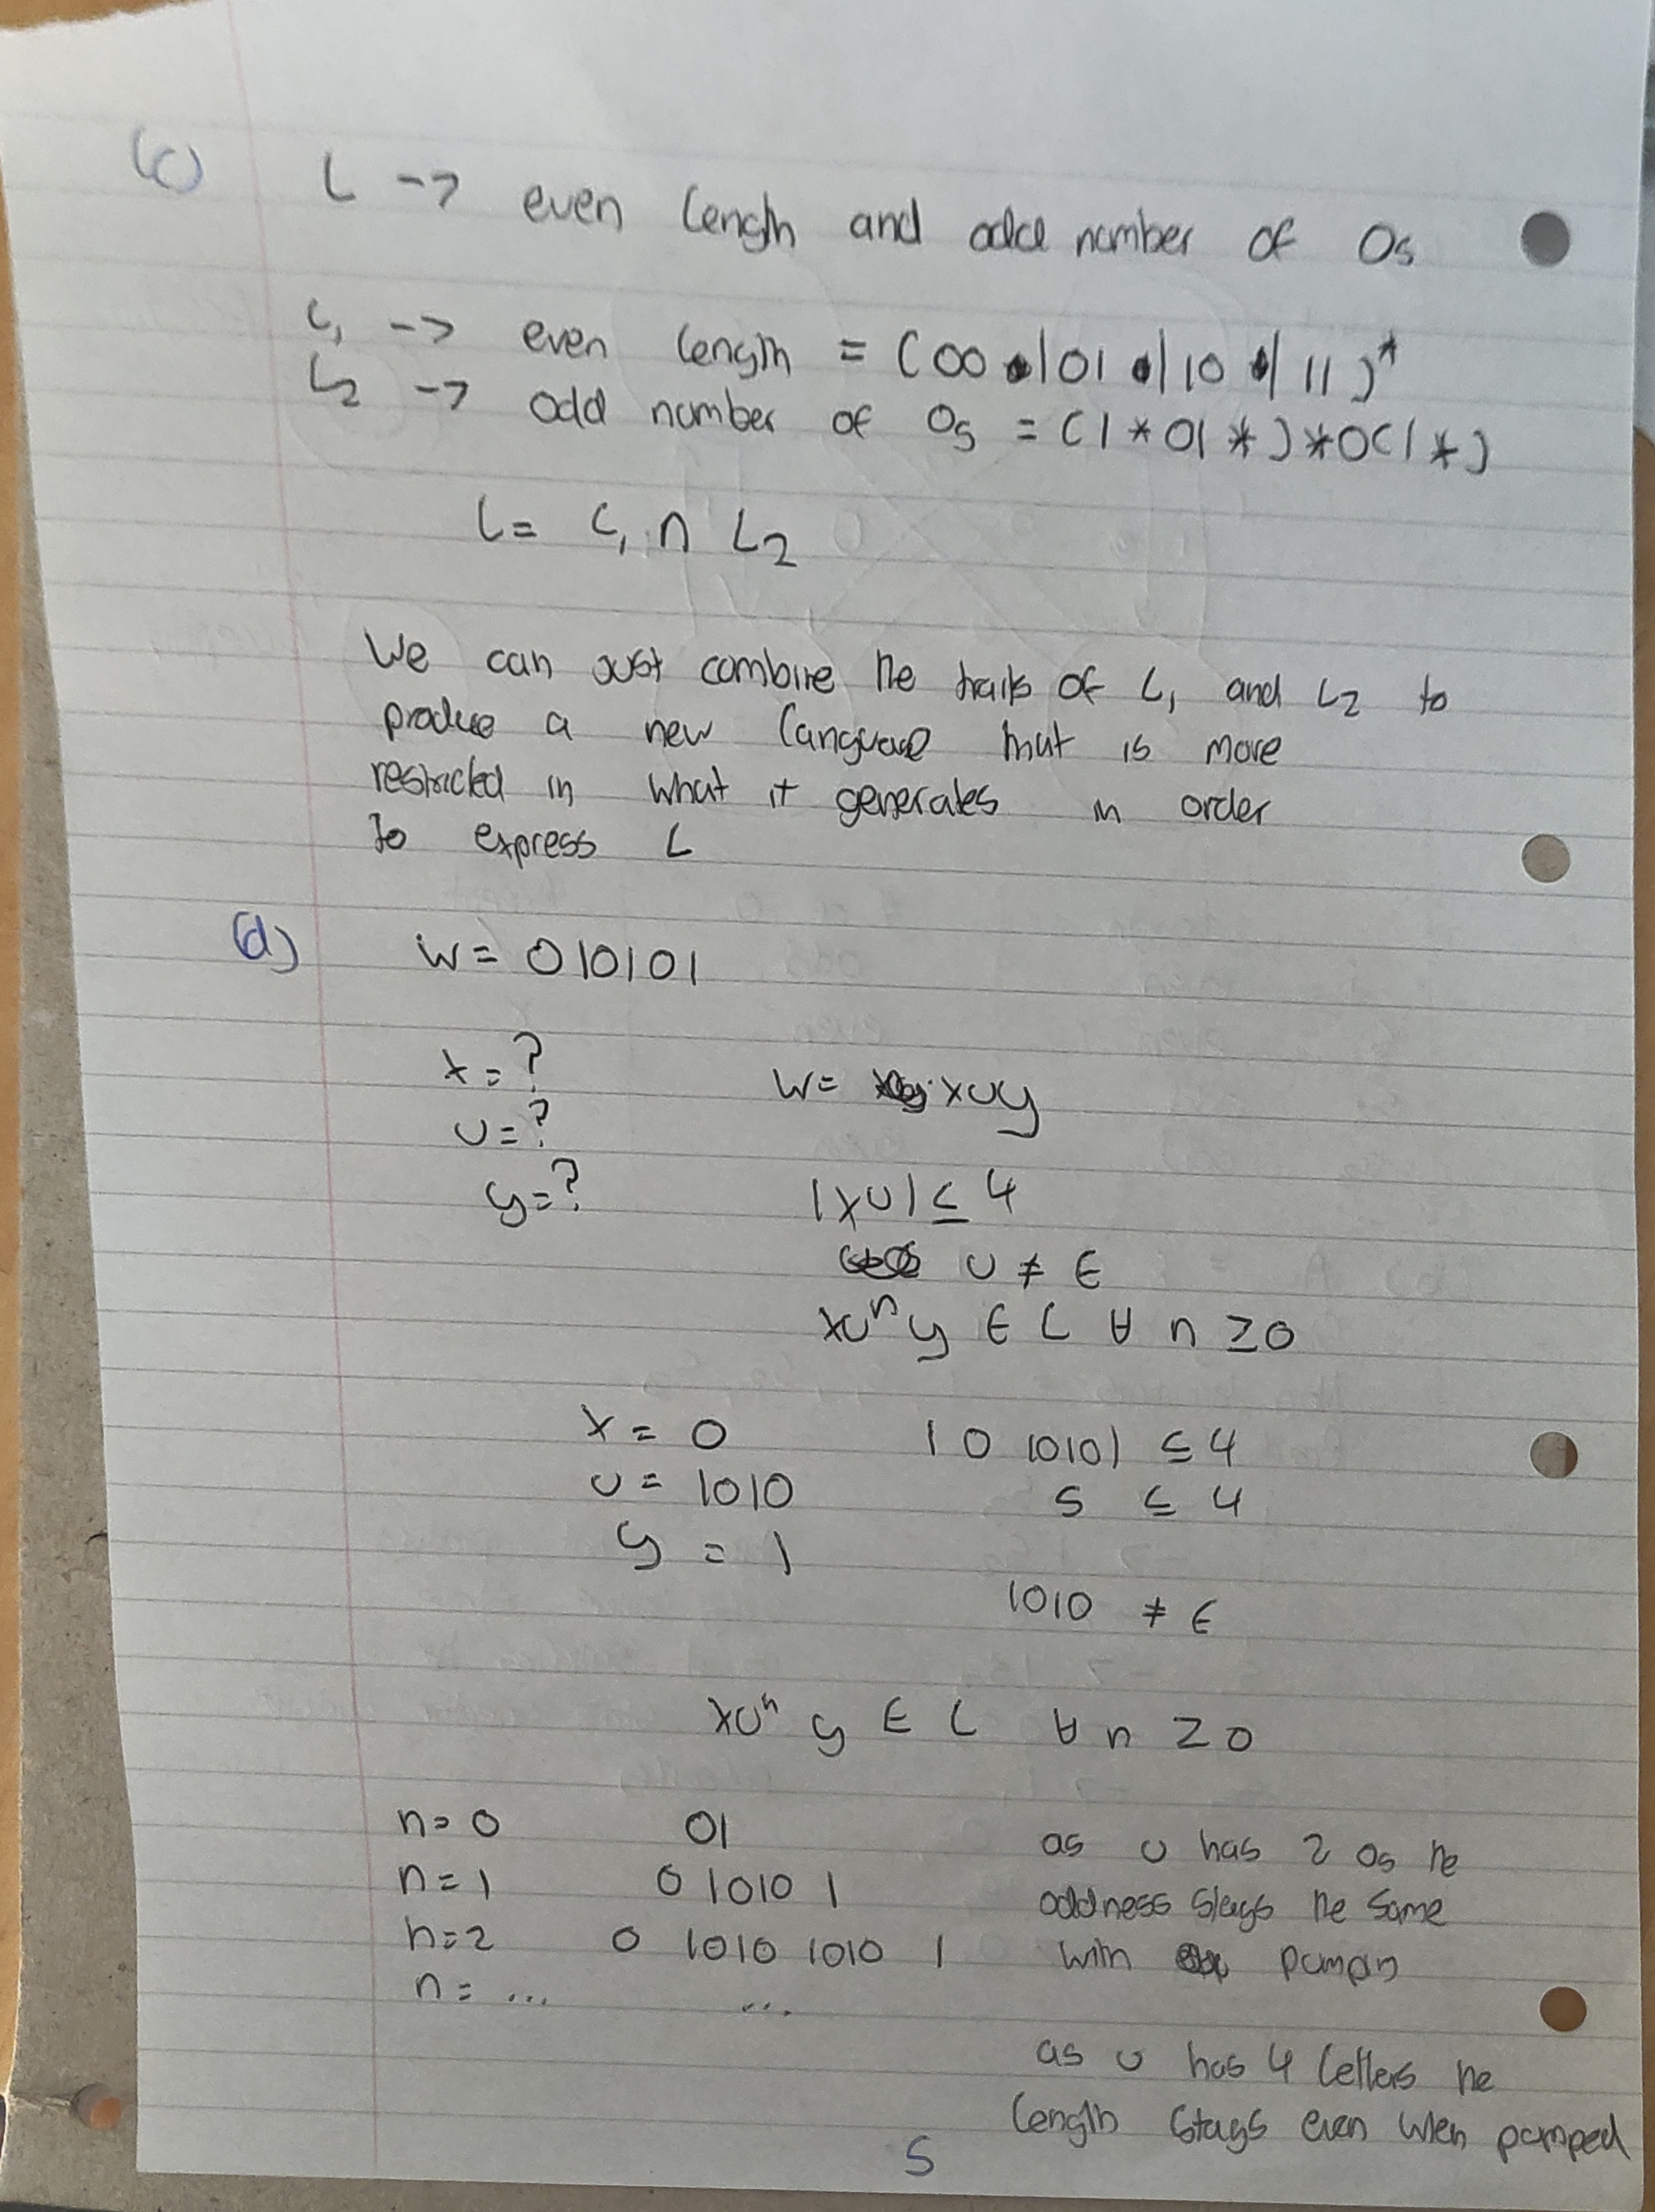 (c) L -> even length and odd number of 0s
L₁ -> even length = (00|01|10|11)*
L₂ -> odd number of 0s = (1*01*)*0(1*)
L = L₁ ∩ L₂
We can just combine the traits of L₁ and L₂ to
produce a new language that is more
restricted in what it generates in order
to express L
(d) w = 010101
x = ?
w = xuy
u = ?
y = ?
|xu| ≤ 4
u ≠ ε
xuⁿy ∈ L ∀ n ≥ 0
x = 0 |0 1010| ≤ 4
u = 1010 5 ≤ 4
y = 1
1010 ≠ ε
xuⁿy ∈ L ∀ n ≥ 0
n = 0 01 as u has 2 0s the
n = 1 0 1010 1 oddness stays the same
n = 2 0 1010 1010 1 with pumpin
n = ... ...
as u has 4 letters the
length stays even when pumped
5